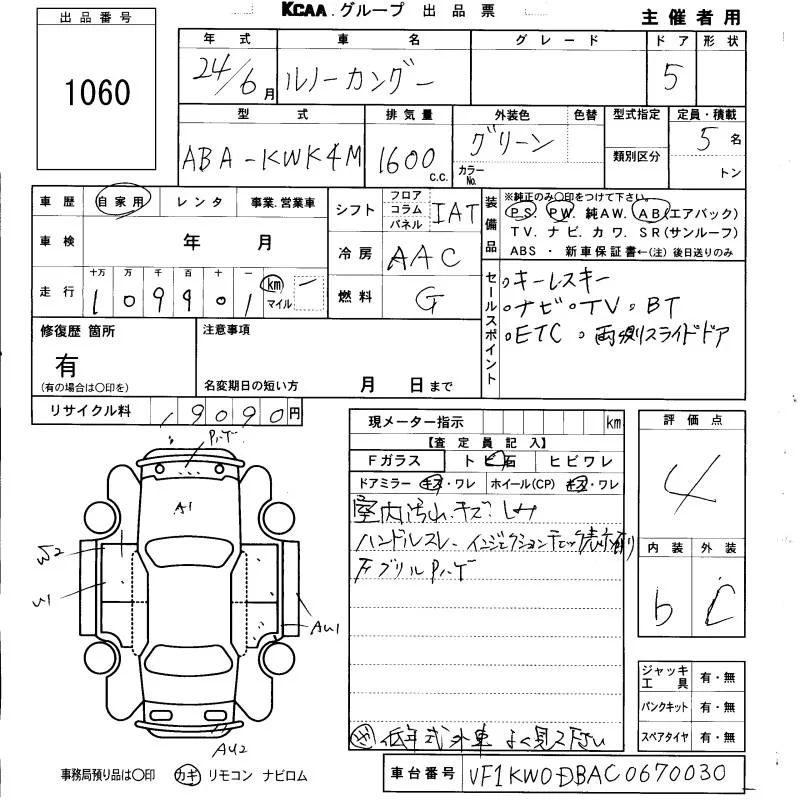 KCAA.グループ 出品票
主催者用
出品番号
1060
年式 車名 グレード ドア 形状
24/6月 ルノーカングー 5
型式 排気量 外装色 色替 型式指定 定員・積載
ABA-KWK4M 1600 c.c. グリーン カラーNo. 類別区分 5名 トン
車歴 自家用 レンタ 事業.営業車
車検 年 月
走行 十万 万 千 百 十 一
109901 km マイル
シフト フロア コラム パネル IAT
冷房 AAC
燃料 G
装備品 ※純正のみ○印をつけて下さい。
PS. PW. 純AW. AB(エアバック)
TV. ナビ. カワ. SR(サンルーフ)
ABS ・ 新車保証書←(注) 後日送りのみ
セールスポイント
。キーレスキー
。ナビ。TV。BT
。ETC 。両側スライドドア
修復歴 箇所
有
(有の場合は○印を)
注意事項
名変期日の短い方 月 日まで
リサイクル料 19090円
現メーター指示 km
【査定員記入】
Fガラス トビ石 ヒビワレ
ドアミラー キズ・ワレ ホイール(CP) キズ・ワレ
室内汚れ.キズ.シミ
ハンドルスレ. インジェクションチェック表示有り
Fグリルハゲ
低年式外車 よく見て下さい
評価点
4
内装 外装
b C
ジャッキ工具 有・無
パンクキット 有・無
スペアタイヤ 有・無
ハゲ
A1
W2
U1
AU1
AU2
事務局預り品は○印 カギ リモコン ナビロム
車台番号 VF1KW0DBAC0670030